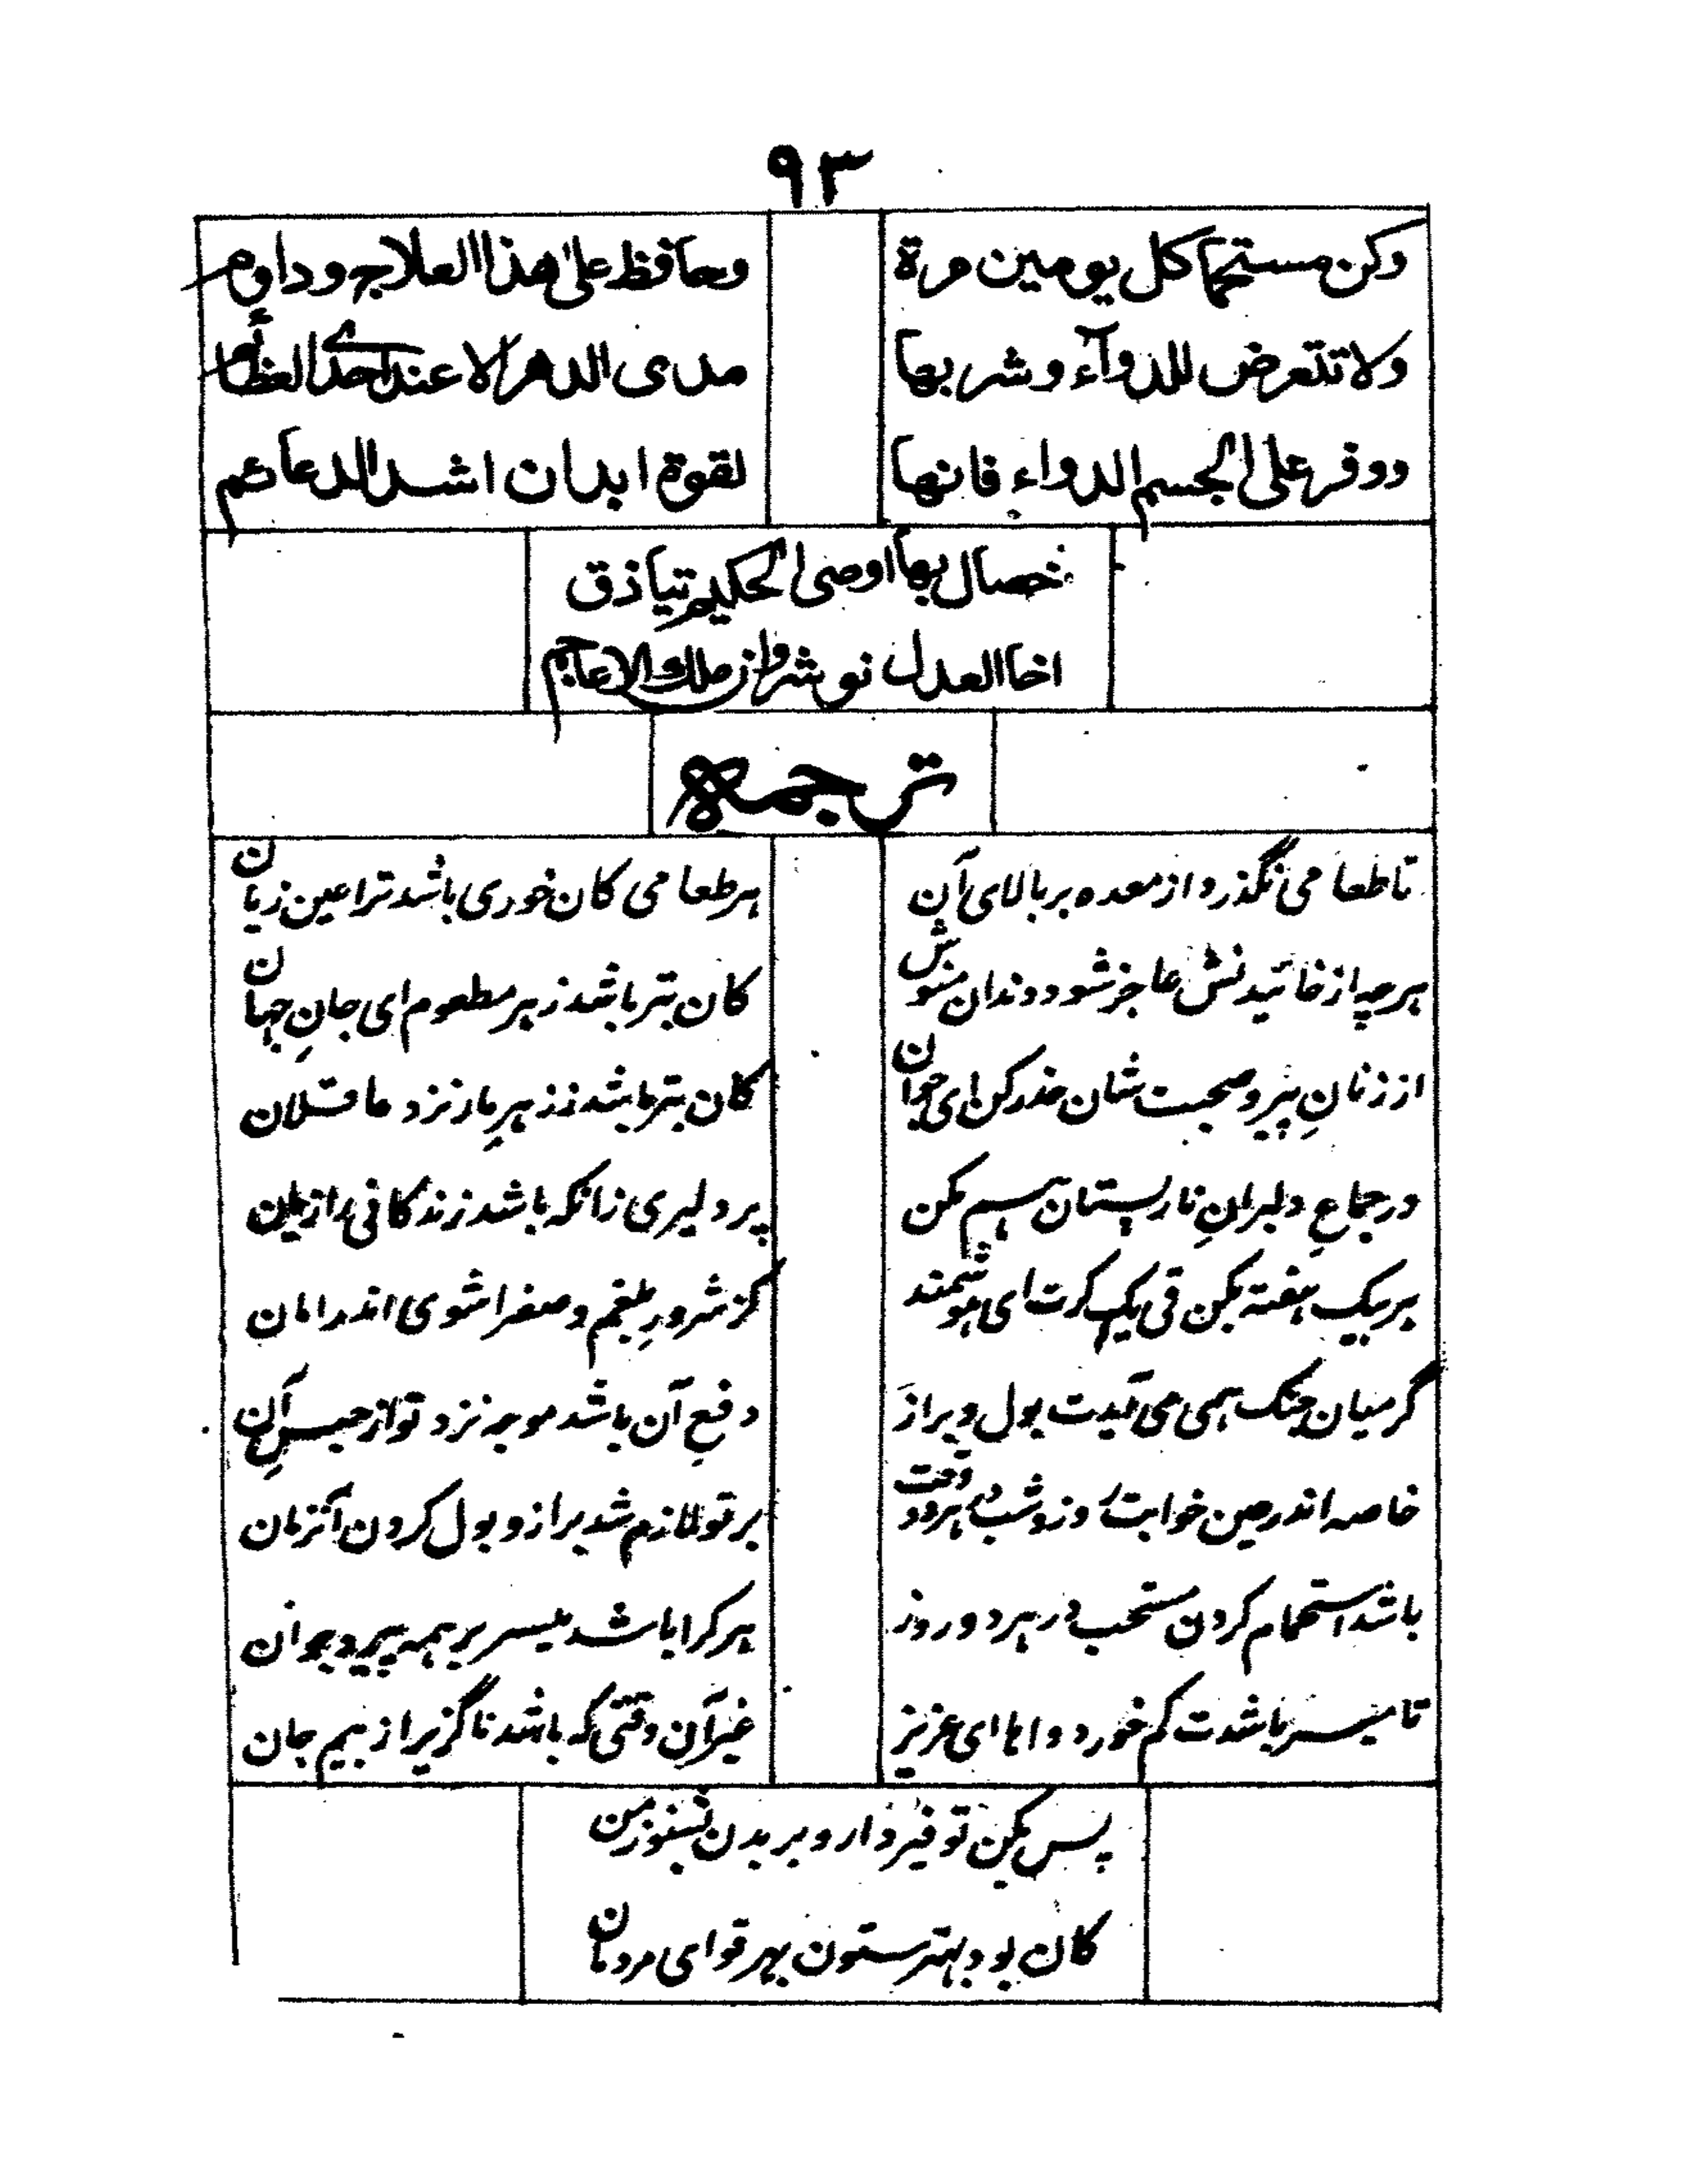 ٩٣
وكن مستحما كل يومين مرة
وحافظ على هذا العلاج وداوم
ولا تتعرض للدوآء وشربها
مدى الدهر الا عند احدى العظائم
ووفر على الجسم الدواء فانها
لقوة ابدان اشد الدعائم
خصال بها اوصى الحكيم تياذق
اخا العدل نوشروان ملك الاعاجم
ترجمه
تا طعامی نگذرد از معده بر بالای آن
هر طعامی کان خوری باشد ترا عین زیان
هرچه از خائیدنش عاجز شود دندان منوش
کان بتر باشد ز هر مطعوم ای جانِ جهان
از زنانِ پیر و صحبت شان حذر کن ای جوان
کان بتر باشد ز زهرِ مار نزد عاقلان
در جماعِ دلبرانِ نارپستان هم مکن
پر دلیری زانکه باشد زندگانی را زیان
بر یک هفته بکن قی یک کرت ای هوشمند
کز شرورِ بلغم و صفرا شوی اندر امان
گر میان جنگ همی می آیدت بول و براز
دفعِ آن باشد موجه نزد تو از حبسِ آن
خاصه اندر حین خوابت روز و شب هر دو وقت
بر تو لازم شد براز و بول کردن آنزمان
باشد استحمام کردن مستحب در هر دو روز
هر کرا باشد میسر بر همه پیر و جوان
تا میسر باشدت کم خور دواها ای عزیز
غیرآن وقتی که باشد ناگزیر از بیم جان
پس بکن توفیر دارو بر بدن بشنو ز من
کان بود بهتر ستون بهر قوای مردمان